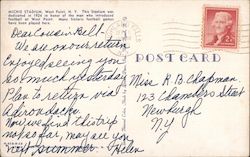 MICHIE STADIUM, West Point, N. Y. This Stadium was
dedicated in 1924 in honor of the man who introduced
football at West Point. Many historic football games
have been played here.
Dear Cousin Bell-
We are on our return
Enjoyed seeing you
so much yesterday
Plan to return via
Adirondacks.
Now we find this trip
not so far, may see you
next summer - Helen
POST CARD
Miss H. B. Chapman
123 Chambers Street
Newburgh
N.Y.